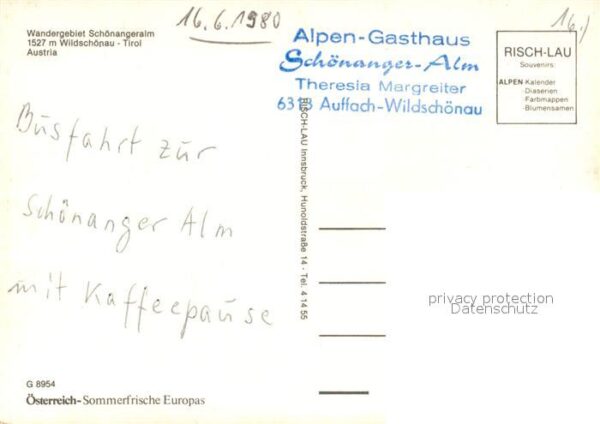 16.6.1980
16.)
Wandergebiet Schönangeralm
1527 m Wildschönau - Tirol
Austria
Alpen-Gasthaus
Schönanger-Alm
Theresia Margreiter
6313 Auffach-Wildschönau
RISCH-LAU
Souvenirs:
ALPEN-Kalender
-Diaserien
-Farbmappen
-Blumensamen
Busfahrt zur
Schönanger Alm
mit Kaffeepause
RISCH-LAU Innsbruck, Hunoldstraße 14 - Tel. 4 14 55
privacy protection
Datenschutz
G 8954
Österreich-Sommerfrische Europas